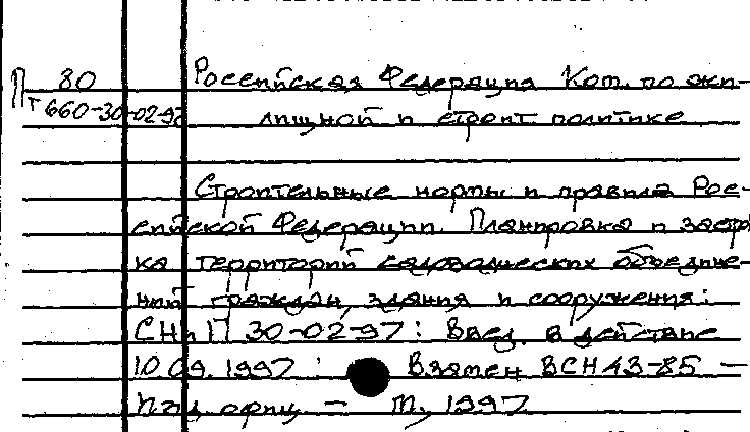 П 80
Т 660-30-02-97
Российская Федерация. Ком. по жи-
лищной и строит. политике.
Строительные нормы и правила Рос-
сийской Федерации. Планировка и застрой
ка территорий садоводческих объедине-
ний граждан, здания и сооружения:
СНиП 30-02-97: Введ. в действие
10.09.1997: Взамен ВСН 43-85 —
Изд. офиц. — М., 1997